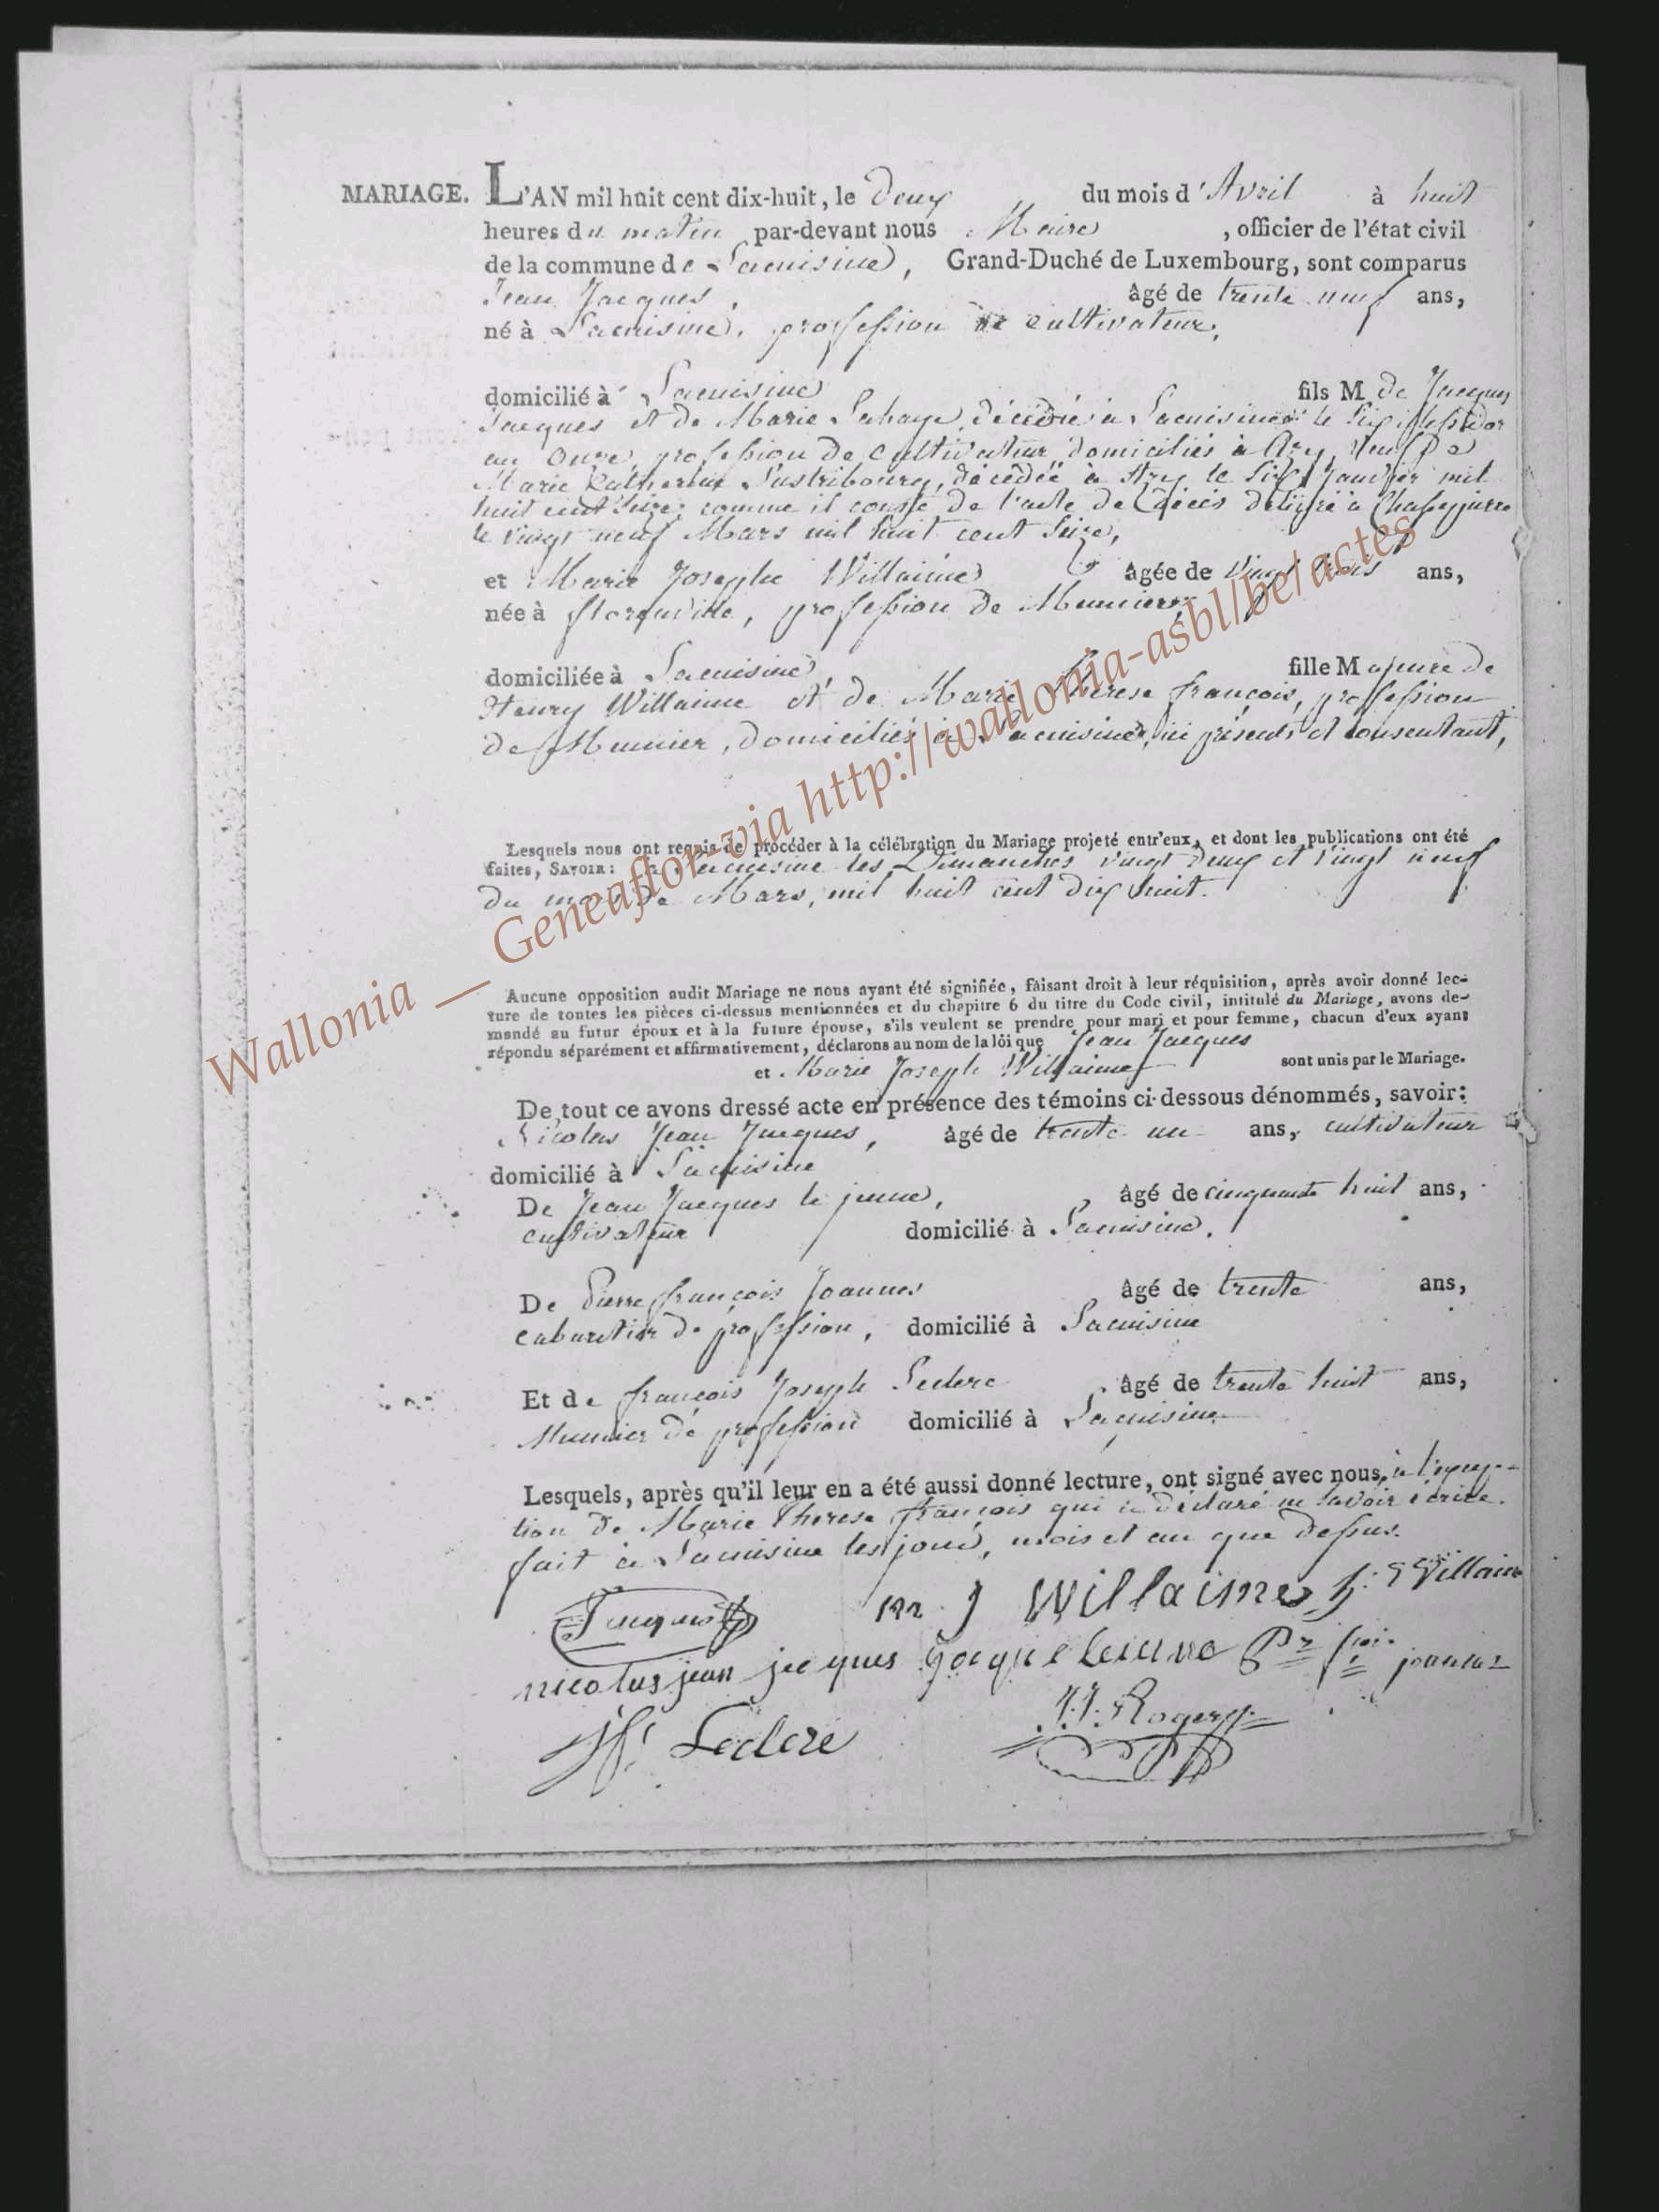 MARIAGE. L'AN mil huit cent dix-huit, le deux du mois d'Avril à huit
heures du matin par-devant nous Maire , officier de l'état civil
de la commune de Lacuisine, Grand-Duché de Luxembourg, sont comparus
Jean Jacques, âgé de trente neuf ans,
né à Lacuisine, profession de cultivateur,
domicilié à Lacuisine fils M de Jacques
Jacques et de Marie Lahaye, décédé à Lacuisine le six
an onze, profession de cultivateur, domiciliés à Azy, veuf de
Marie Katherine décédée à Azy le six Janvier mil
huit cent seize, comme il conste de l'acte de décès délivré à Chassepierre
le vingt neuf Mars mil huit cent seize,
et Marie Josephe Willaime âgée de vingt trois ans,
née à florenville, profession de Meunier,
domiciliée à Lacuisine, fille Majeure de
Henry Willaime et de Marie Therese françois, profession
de Meunier, domiciliés à Lacuisine, ici présents et consentant,
Lesquels nous ont requis de procéder à la célébration du Mariage projeté entr'eux, et dont les publications ont été
faites, SAVOIR: à Lacuisine les Dimanches vingt deux et vingt neuf
du mois de Mars, mil huit cent dix huit.
Aucune opposition audit Mariage ne nous ayant été signifiée, faisant droit à leur réquisition, après avoir donné lec-
ture de toutes les pièces ci-dessus mentionnées et du chapitre 6 du titre du Code civil, intitulé du Mariage, avons de-
mandé au futur époux et à la future épouse, s'ils veulent se prendre pour mari et pour femme, chacun d'eux ayant
répondu séparément et affirmativement, déclarons au nom de la loi que Jean Jacques
et Marie Joseph Willaime sont unis par le Mariage.
De tout ce avons dressé acte en présence des témoins ci-dessous dénommés, savoir:
Nicolas Jean Jacques, âgé de trente un ans, cultivateur
domicilié à Lacuisine
De Jean Jacques le jeune, âgé de cinquante huit ans,
cultivateur domicilié à Lacuisine.
De Pierre françois Joannes âgé de trente ans,
cabaretier de profession, domicilié à Lacuisine
Et de françois Joseph Leclerc âgé de trente huit ans,
Meunier de profession domicilié à Lacuisine
Lesquels, après qu'il leur en a été aussi donné lecture, ont signé avec nous, à l'excep-
tion de Marie Therese françois qui a déclaré ne savoir écrire.
fait à Lacuisine les jour, mois et an que dessus.
m j Willaime h: Willaime
nicolas jean jacques jacque leiune Pre foi joannes
Leclere J.J. Rogery
Wallonia __ Geneaflor-via http://wallonia-asbl/be/actes